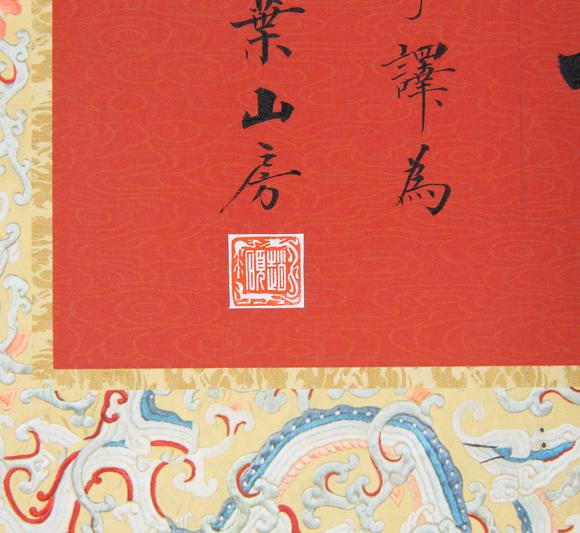 譯為
葉山房